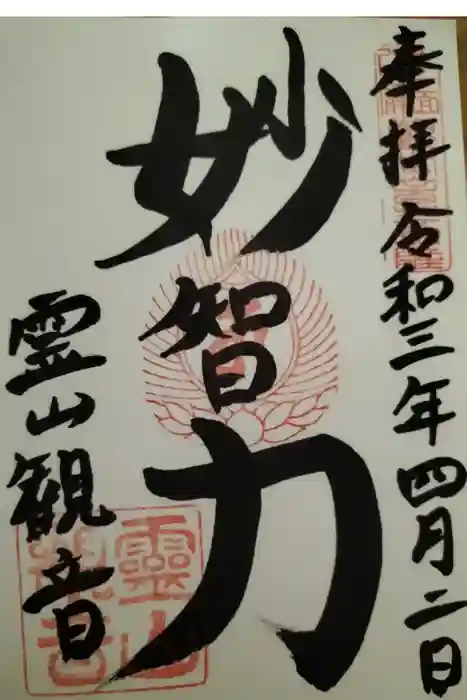 奉拝 令和三年四月二日
妙智力
霊山観音
靈山觀音